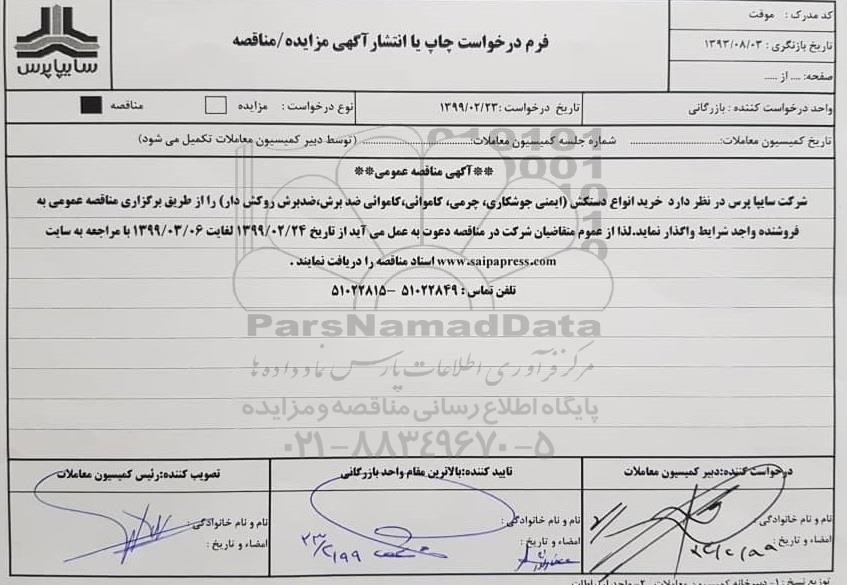 کد مدرک : موقت
تاریخ بازنگری : ۱۳۹۳/۰۸/۰۳
صفحه: .... از .....
فرم درخواست چاپ یا انتشار آگهی مزایده/مناقصه
سایپا پرس
واحد درخواست کننده : بازرگانی
تاریخ درخواست :۱۳۹۹/۰۲/۲۳
نوع درخواست : مزایده مناقصه
تاریخ کمیسیون معاملات:........................ شماره جلسه کمیسیون معاملات:........................ (توسط دبیر کمیسیون معاملات تکمیل می شود)
**آگهی مناقصه عمومی**
شرکت سایپا پرس در نظر دارد خرید انواع دستکش (ایمنی جوشکاری، چرمی، کاموائی،کاموائی ضد برش،ضدبرش روکش دار) را از طریق برگزاری مناقصه عمومی به
فروشنده واجد شرایط واگذار نماید.لذا از عموم متقاضیان شرکت در مناقصه دعوت به عمل می آید از تاریخ ۱۳۹۹/۰۲/۲۴ لغایت ۱۳۹۹/۰۳/۰۶ با مراجعه به سایت
www.saipapress.com اسناد مناقصه را دریافت نمایند .
تلفن تماس : ۵۱۰۲۲۸۴۹ – ۵۱۰۲۲۸۱۵
ParsNamadData
مرکز فرآوری اطلاعات پارس نماد داده ها
پایگاه اطلاع رسانی مناقصه و مزایده
۰۲۱-۸۸۳۴۹۶۷۰-۵
درخواست کننده:دبیر کمیسیون معاملات
تایید کننده:بالاترین مقام واحد بازرگانی
تصویب کننده:رئیس کمیسیون معاملات
نام و نام خانوادگی :
نام و نام خانوادگی :
نام و نام خانوادگی :
امضاء و تاریخ :
امضاء و تاریخ :
امضاء و تاریخ :
۲۳/۲/۹۹
توزیع نسخ : ۱- دبیرخانه کمیسیون معاملات ۲- واحد ارتباطات